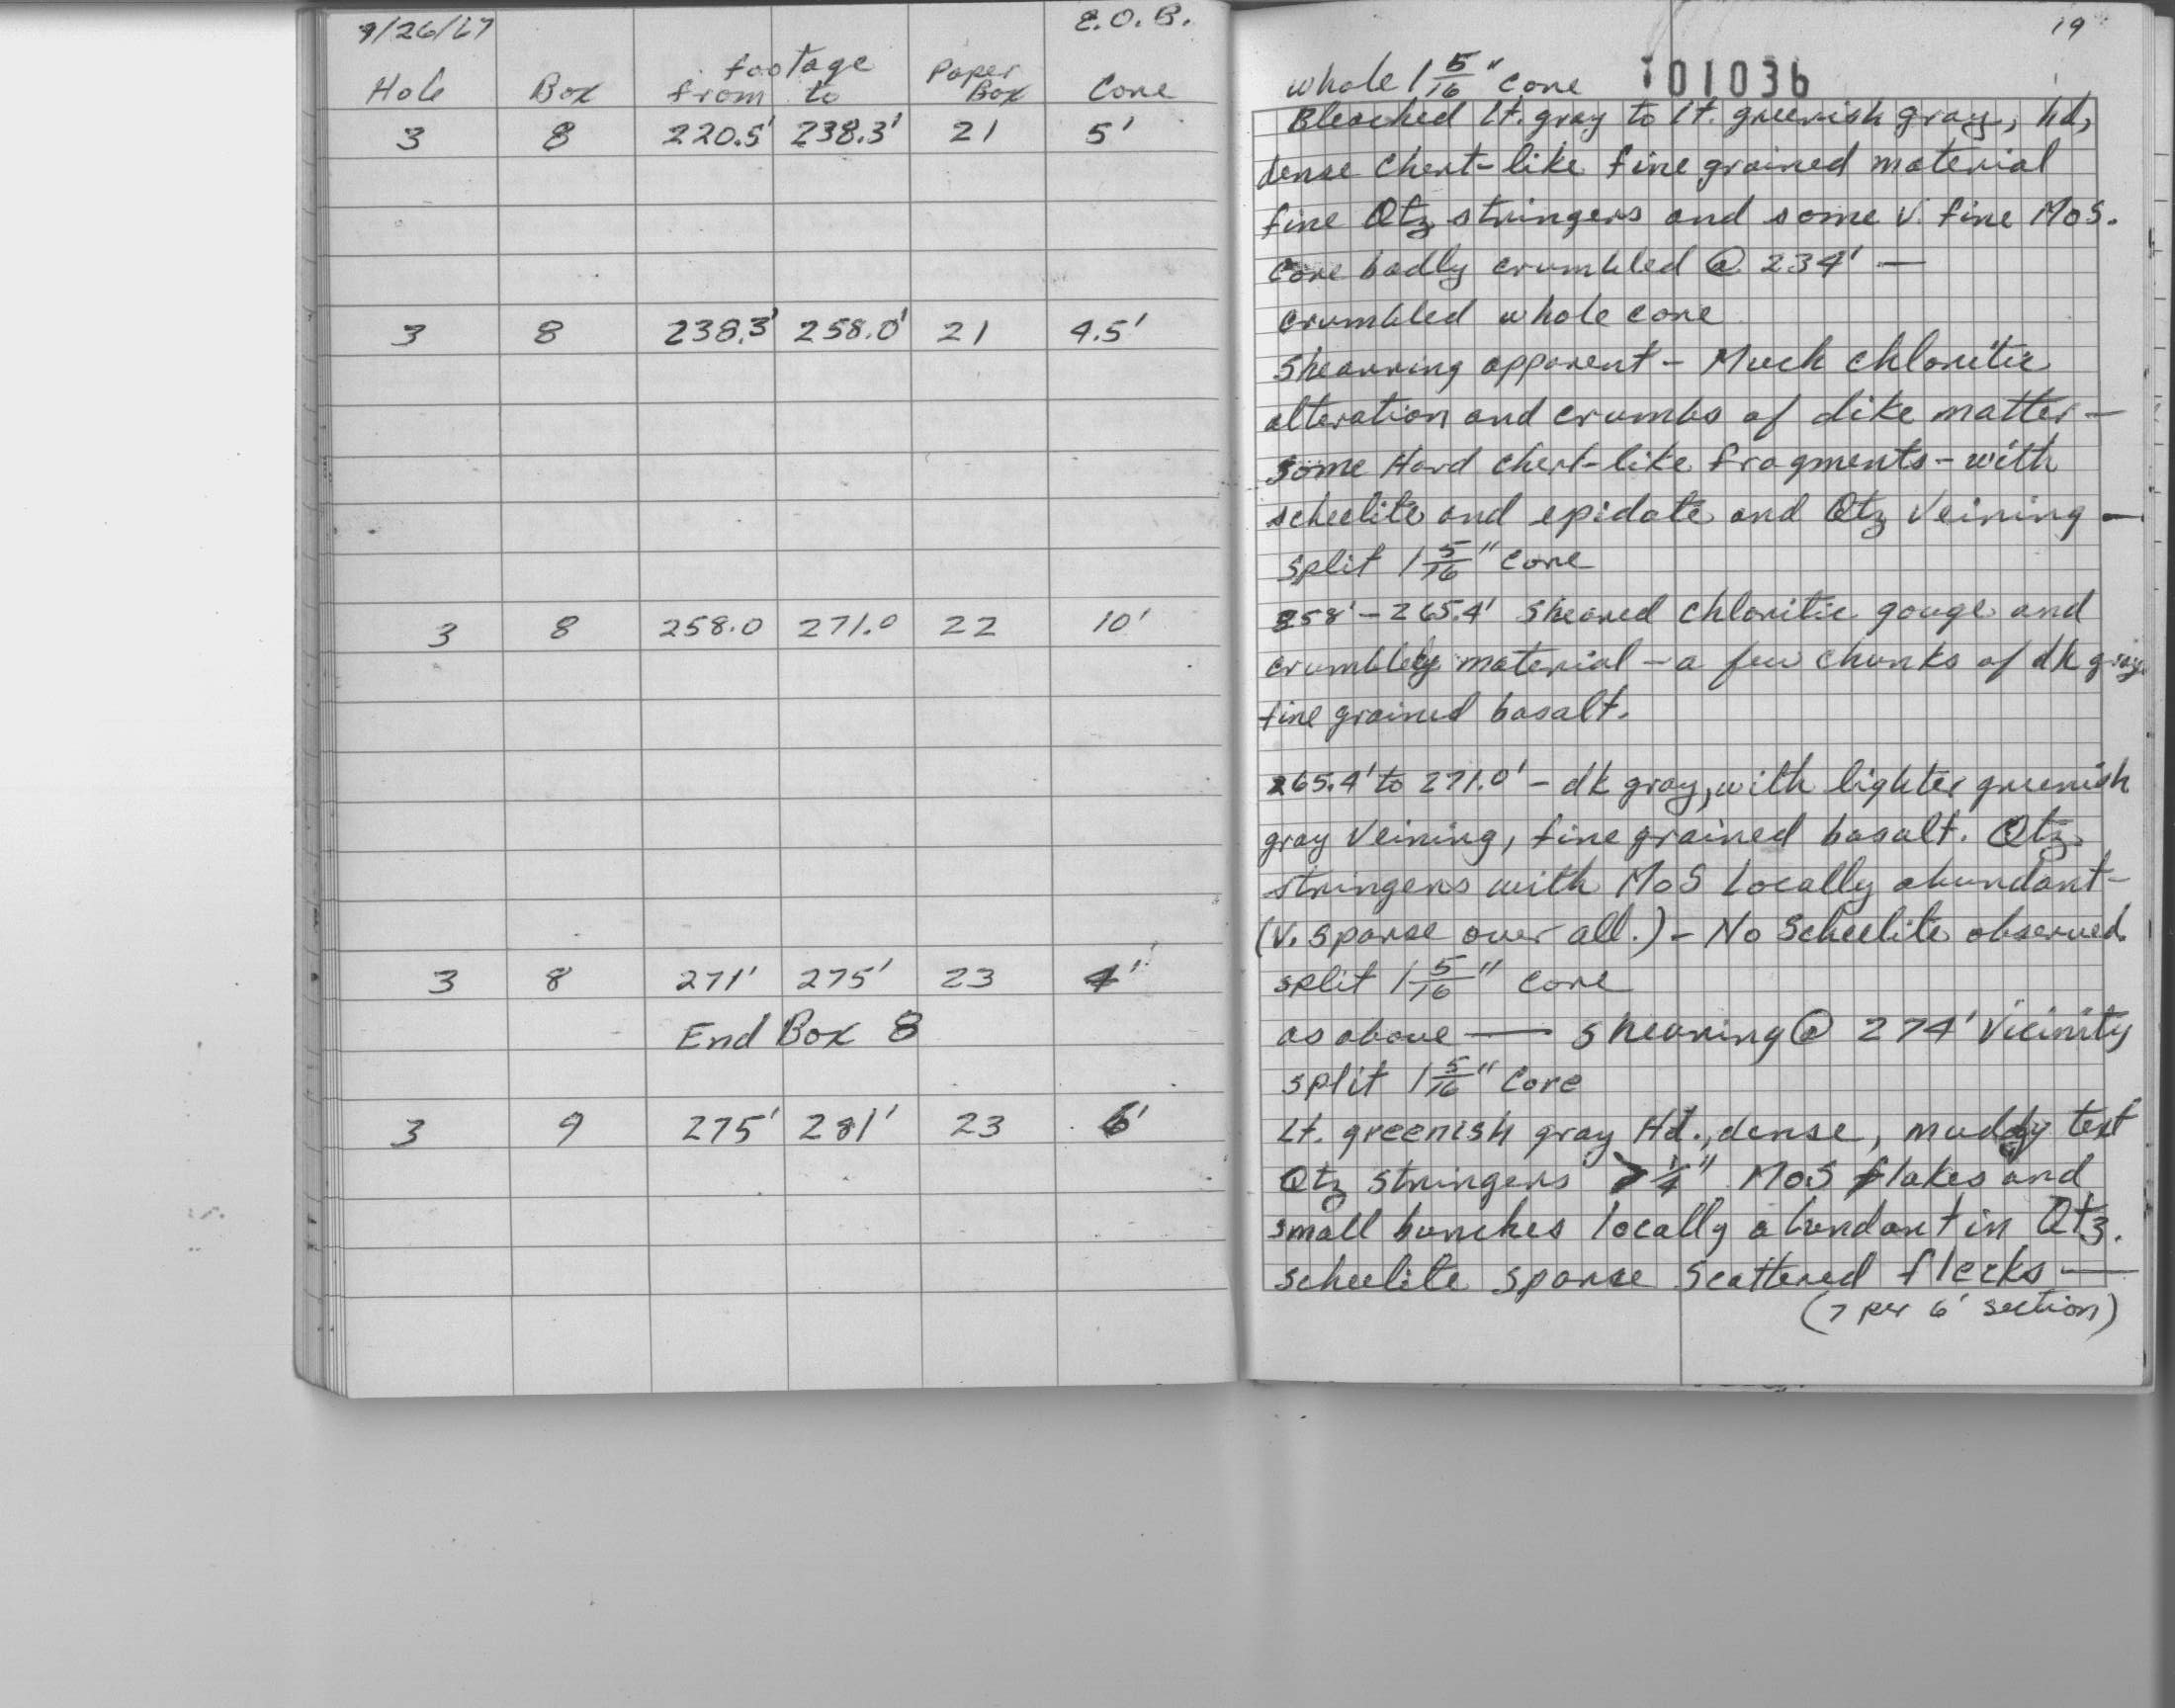 9/26/67 E.O.B.
Hole Box footage from to Paper Box Core
3 8 220.5' 238.3' 21 5'
3 8 238.3' 258.0' 21 4.5'
3 8 258.0 271.0 22 10'
3 8 271' 275' 23 4'
End Box 8
3 9 275' 281' 23 6'
19
whole 1 5/16" core 101036
Bleached lt. gray to lt. greenish gray, hd,
dense chert-like fine grained material
fine Qtz stringers and some v. fine MoS.
core badly crumbled @ 234' —
crumbled whole core
Shearring apparent - Much chloritic
alteration and crumbs of dike matter —
some Hard chert-like fragments - with
scheelite and epidote and Qtz veining —
split 1 5/16" core
258' - 265.4' sheared chloritic gouge and
crumbly material - a few chunks of dk gray
fine grained basalt.
265.4' to 271.0' - dk gray, with lighter greenish
gray veining, fine grained basalt. Qtz
stringers with MoS Locally abundant -
(v. sparse over all.) - No Scheelite observed.
split 1 5/16" core
as above — shearing @ 274' vicinity
split 1 5/16" core
Lt. greenish gray Hd., dense, muddy text
Qtz stringers > 1/4" MoS flakes and
small bunches locally abundant in Qtz.
scheelite sparse scattered flecks —
(7 per 6' section)